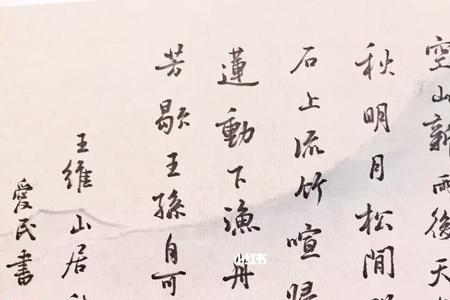 空山新雨後天
秋明月松間
石上流竹喧歸
蓮動下漁舟
芳歇王孫自可
王維山居
愛民書
小红书